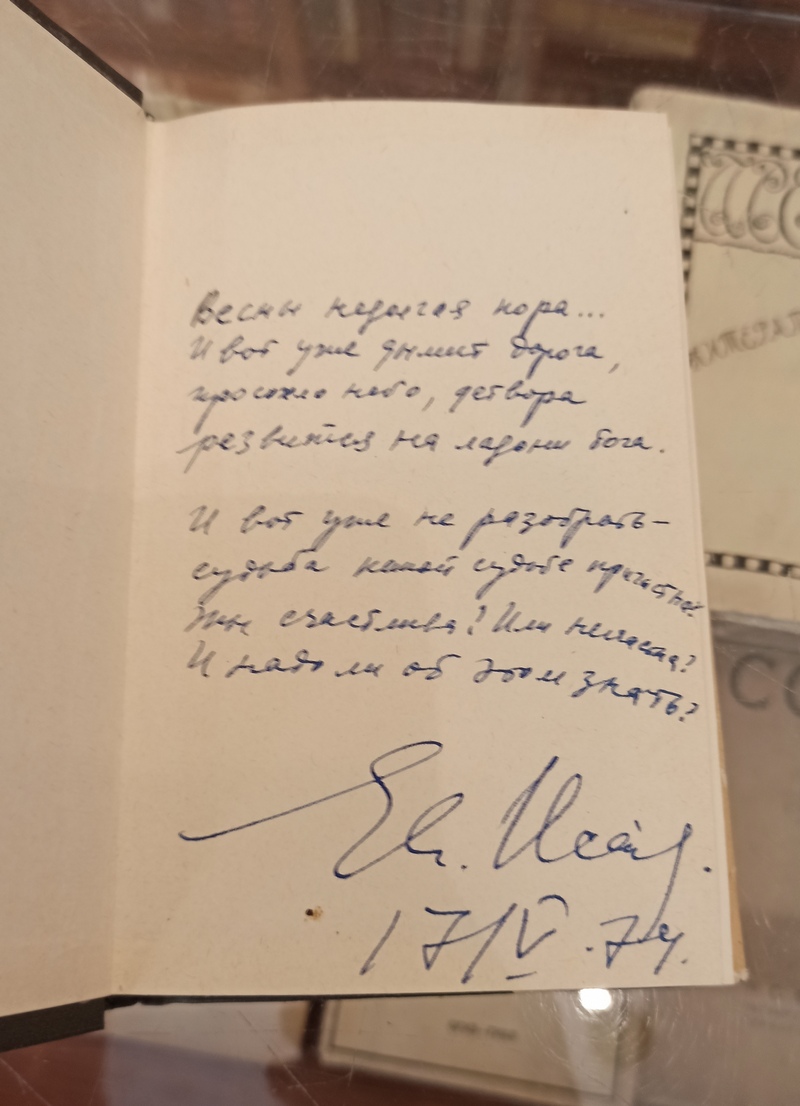 Весны недолгая пора...
И вот уже дымит дорога,
просохло небо, детвора
резвится на ладони бога.
И вот уже не разобрать –
судьба какой судьбе причастна?
Ты счастлива? Или несчастна?
И надо ли об этом знать?
17/V.74.
СО